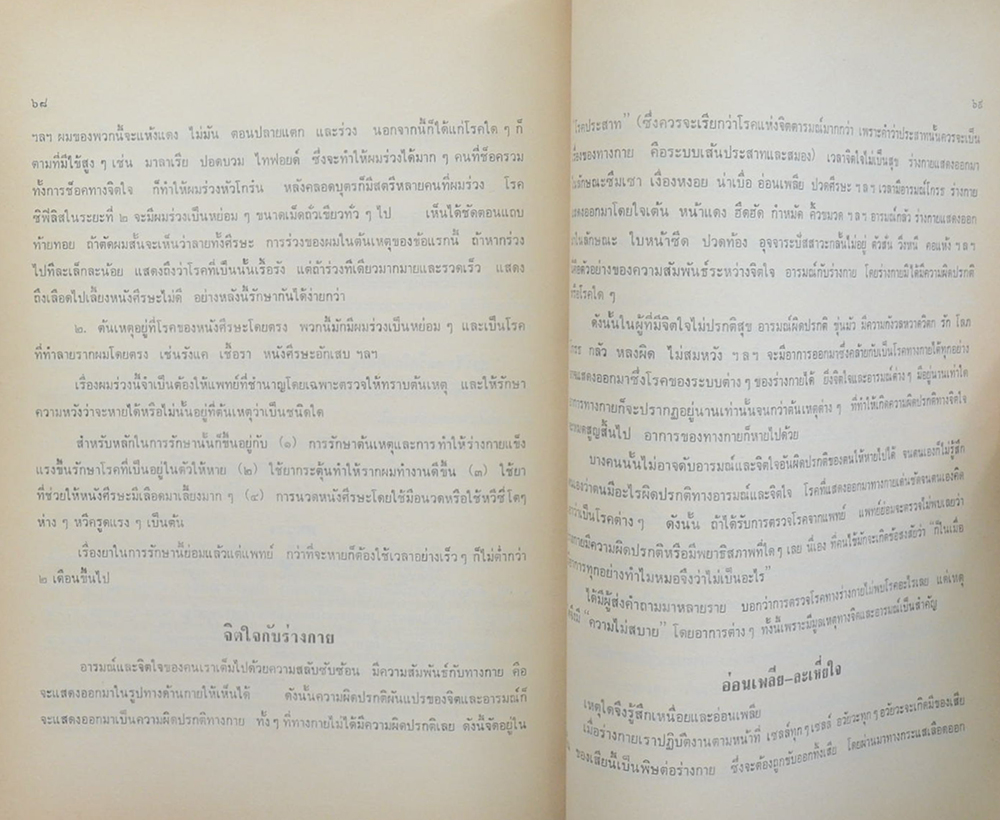 ๖๘
ฯลฯ ผมของพวกนี้จะแห้งแดง ไม่มัน ตอนปลายแตก และร่วง นอกจากนี้ก็ได้แก่โรคใด ๆ ก็
ตามที่มีไข้สูง ๆ เช่น มาลาเรีย ปอดบวม ไทฟอยด์ ซึ่งจะทำให้ผมร่วงได้มาก ๆ คนที่ช็อครวม
ทั้งการช็อคทางจิตใจ ก็ทำให้ผมร่วงหัวโกร๋น หลังคลอดบุตรก็มีสตรีหลายคนที่ผมร่วง โรค
ซิฟิลิสในระยะที่ ๒ จะมีผมร่วงเป็นหย่อม ๆ ขนาดเม็ดถั่วเขียวทั่ว ๆ ไป เห็นได้ชัดตอนแถบ
ท้ายทอย ถ้าตัดผมสั้นจะเห็นว่าลายทั้งศีรษะ การร่วงของผมในต้นเหตุของข้อแรกนี้ ถ้าหากร่วง
ไปทีละเล็กละน้อย แสดงถึงว่าโรคที่เป็นนั้นเรื้อรัง แต่ถ้าร่วงทีเดียวมากมายและรวดเร็ว แสดง
ถึงเลือดไปเลี้ยงหนังศีรษะไม่ดี อย่างหลังนี้รักษากันได้ง่ายกว่า
๒. ต้นเหตุอยู่ที่โรคของหนังศีรษะโดยตรง พวกนี้มักมีผมร่วงเป็นหย่อม ๆ และเป็นโรค
ที่ทำลายรากผมโดยตรง เช่นรังแค เชื้อรา หนังศีรษะอักเสบ ฯลฯ
เรื่องผมร่วงนี้จำเป็นต้องให้แพทย์ที่ชำนาญโดยเฉพาะตรวจให้ทราบต้นเหตุ และให้รักษา
ความหวังว่าจะหายได้หรือไม่นั้นอยู่ที่ต้นเหตุว่าเป็นชนิดใด
สำหรับหลักในการรักษานั้นก็ขึ้นอยู่กับ (๑) การรักษาต้นเหตุและการทำให้ร่างกายแข็ง
แรงขึ้นรักษาโรคที่เป็นอยู่ในตัวให้หาย (๒) ใช้ยากระตุ้นทำให้รากผมทำงานดีขึ้น (๓) ใช้ยา
ที่ช่วยให้หนังศีรษะมีเลือดมาเลี้ยงมาก ๆ (๔) การนวดหนังศีรษะโดยใช้มือนวดหรือใช้หวีซี่โตๆ
ห่าง ๆ หวีครูดแรง ๆ เป็นต้น
เรื่องยาในการรักษานี้ย่อมแล้วแต่แพทย์ กว่าที่จะหายก็ต้องใช้เวลาอย่างเร็ว ๆ ก็ไม่ต่ำกว่า
๒ เดือนขึ้นไป
จิตใจกับร่างกาย
อารมณ์และจิตใจของคนเราเต็มไปด้วยความสลับซับซ้อน มีความสัมพันธ์กับทางกาย คือ
จะแสดงออกมาในรูปทางด้านกายให้เห็นได้ ดังนั้นความผิดปรกติผันแปรของจิตและอารมณ์ก็
จะแสดงออกมาเป็นความผิดปรกติทางกาย ทั้ง ๆ ที่ทางกายไม่ได้มีความผิดปรกติเลย ดังนี้จัดอยู่ใน
๖๙
"โรคประสาท" (ซึ่งควรจะเรียกว่าโรคแห่งจิตอารมณ์มากกว่า เพราะคำว่าประสาทนั้นควรจะเป็น
เรื่องของทางกาย คือระบบเส้นประสาทและสมอง) เวลาจิตใจไม่เป็นสุข ร่างกายแสดงออกมา
ในลักษณะซึมเซา เงื่องหงอย น่าเบื่อ อ่อนเพลีย ปวดศีรษะ ฯลฯ เวลามีอารมณ์โกรธ ร่างกาย
แสดงออกมาโดยใจเต้น หน้าแดง ฮึดฮัด กำหมัด คิ้วขมวด ฯลฯ อารมณ์กลัว ร่างกายแสดงออก
ในลักษณะ ใบหน้าซีด ปวดท้อง อุจจาระปัสสาวะกลั้นไม่อยู่ ตัวสั่น วิ่งหนี คอแห้ง ฯลฯ
คือตัวอย่างของความสัมพันธ์ระหว่างจิตใจ อารมณ์กับร่างกาย โดยร่างกายมิได้มีความผิดปรกติ
หรือโรคใด ๆ
ดังนั้นในผู้ที่มีจิตใจไม่ปรกติสุข อารมณ์ผิดปรกติ ขุ่นมัว มีความกังวลหวาดวิตก รัก โลภ
โกรธ กลัว หลงผิด ไม่สมหวัง ฯลฯ จะมีอาการออกมาซึ่งคล้ายกับเป็นโรคทางกายได้ทุกอย่าง
แสดงออกมาซึ่งโรคของระบบต่าง ๆ ของร่างกายได้ ยิ่งจิตใจและอารมณ์ต่าง ๆ มีอยู่นานเท่าใด
อาการทางกายก็จะปรากฏอยู่นานเท่านั้นจนกว่าต้นเหตุต่าง ๆ ที่ทำให้เกิดความผิดปรกติทางจิตใจ
จะหมดสูญสิ้นไป อาการของทางกายก็หายไปด้วย
บางคนนั้นไม่อาจดับอารมณ์และจิตใจอันผิดปรกติของตนให้หายไปได้ จนตนเองก็ไม่รู้สึก
ตนเองว่าตนมีอะไรผิดปรกติทางอารมณ์และจิตใจ โรคที่แสดงออกมาทางกายเด่นชัดจนตนเองคิด
ว่าเป็นโรคต่าง ๆ ดังนั้น ถ้าได้รับการตรวจโรคจากแพทย์ แพทย์ย่อมจะตรวจไม่พบเลยว่า
ร่างกายมีความผิดปรกติหรือมีพยาธิสภาพที่ใด ๆ เลย นี่เอง ที่คนไข้มักจะเกิดข้อสงสัยว่า "ก็ในเมื่อ
มีอาการทุกอย่างทำไมหมอจึงว่าไม่เป็นอะไร"
ได้มีผู้ส่งคำถามมาหลายราย บอกว่าการตรวจโรคทางร่างกายไม่พบโรคอะไรเลย แต่เหตุ
ใดจึงมี "ความไม่สบาย" โดยอาการต่าง ๆ ทั้งนี้เพราะมีมูลเหตุทางจิตและอารมณ์เป็นสำคัญ
อ่อนเพลีย-ละเหี่ยใจ
เหตุใดจึงรู้สึกเหนื่อยและอ่อนเพลีย
เมื่อร่างกายเราปฏิบัติงานตามหน้าที่ เซลล์ทุกๆเซลล์ อวัยวะทุกๆอวัยวะจะเกิดมีของเสีย
ของเสียนี้เป็นพิษต่อร่างกาย ซึ่งจะต้องถูกขับออกทั้งเสีย โดยผ่านมาทางกระแสเลือดออก